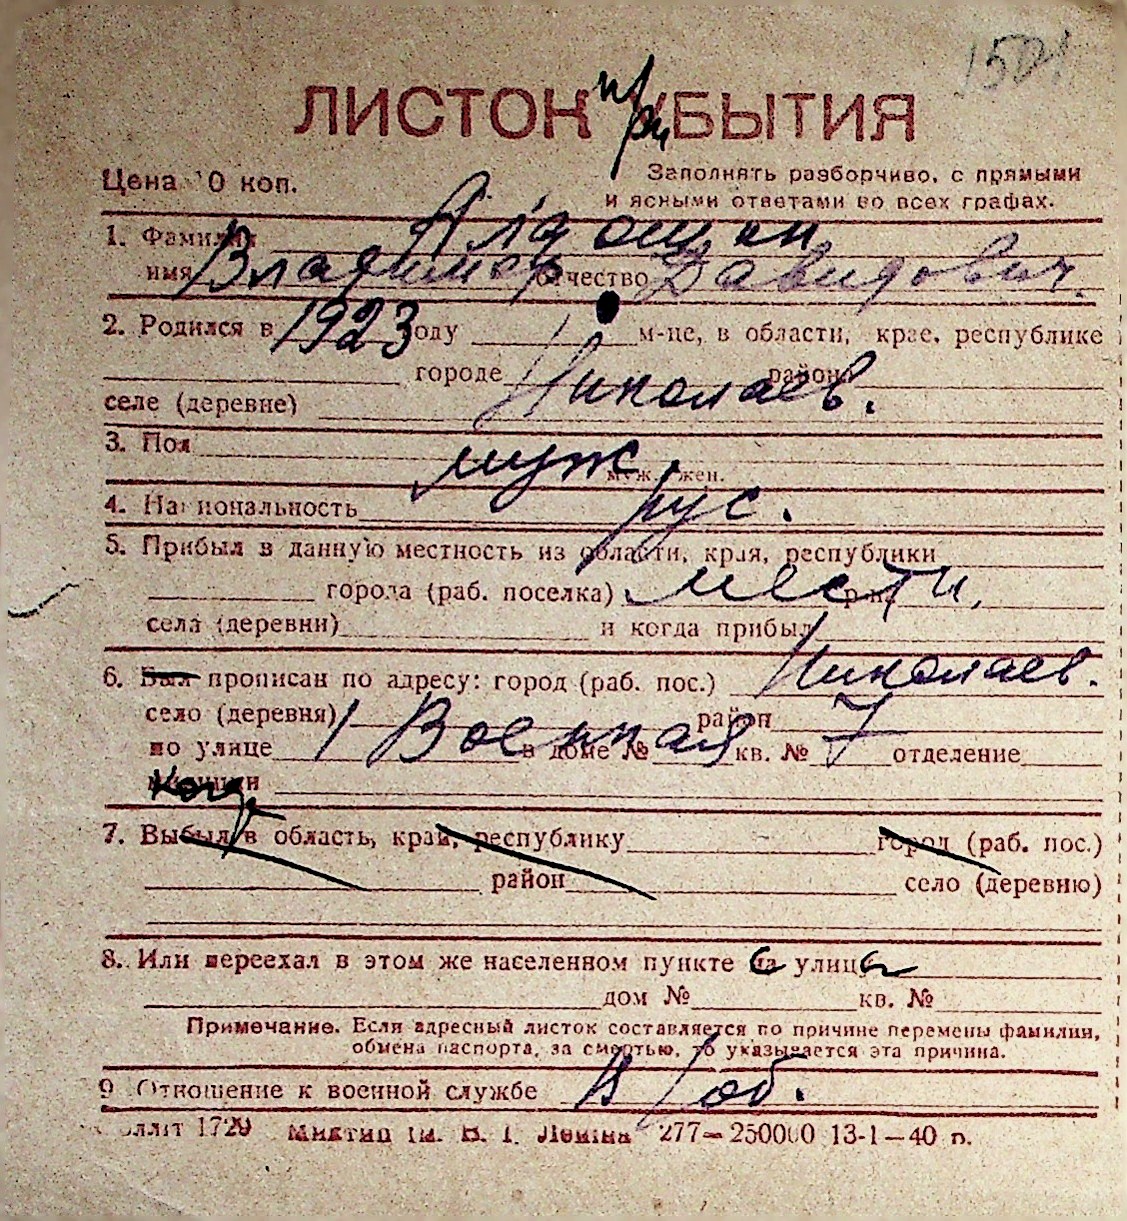 150
ЛИСТОК при УБЫТИЯ
Цена 10 коп.
Заполнять разборчиво, с прямыми
и ясными ответами во всех графах.
1. Фамилия Алдошин
имя Владимир отчество Давидович.
2. Родился в 1923 году м-це, в области, крае, республике
городе Николаев. район
селе (деревне)
3. Пол муж
муж. жен.
4. Национальность рус.
5. Прибыл в данную местность из области, края, республики
города (раб. поселка) р-на местн.
села (деревни) и когда прибыл
6. Был прописан по адресу: город (раб. пос.) Николаев.
село (деревня) район
по улице 1 Военная в доме № кв. № 7 отделение
милиции
7. Выбыл в область, край, республику город (раб. пос.)
район село (деревню)
8. Или переехал в этом же населенном пункте на улицу
дом № кв. №
Примечание. Если адресный листок составляется по причине перемены фамилии,
обмена паспорта, за смертью, то указывается эта причина.
9 Отношение к военной службе н/об.
1729 277—250000 13-1—40 р.